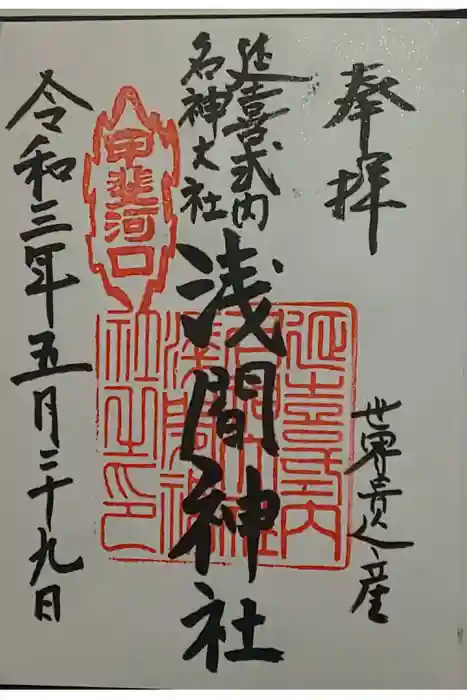 奉拝
世界遺産
延喜式内
名神大社
浅間神社
甲斐河口
延喜式内
名神大社
浅間神
社之印
令和三年五月二十九日